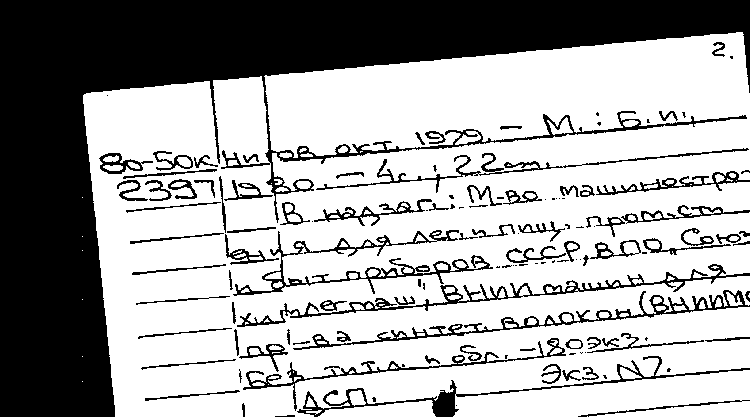 2.
80-50к нигов, окт. 1979. – М. : Б.и.,
2397 1980. – 4с.; 22см.
В надзаг.: М-во машиностро-
ения для лег. и пищ. пром-сти
и быт. приборов СССР, ВПО "Союз-
химлегмаш", ВНИИ машин для
пр-ва синтет. волокон (ВНИИМ
Без тит. л. и обл. – 180экз.
ДСП. Экз. N7.